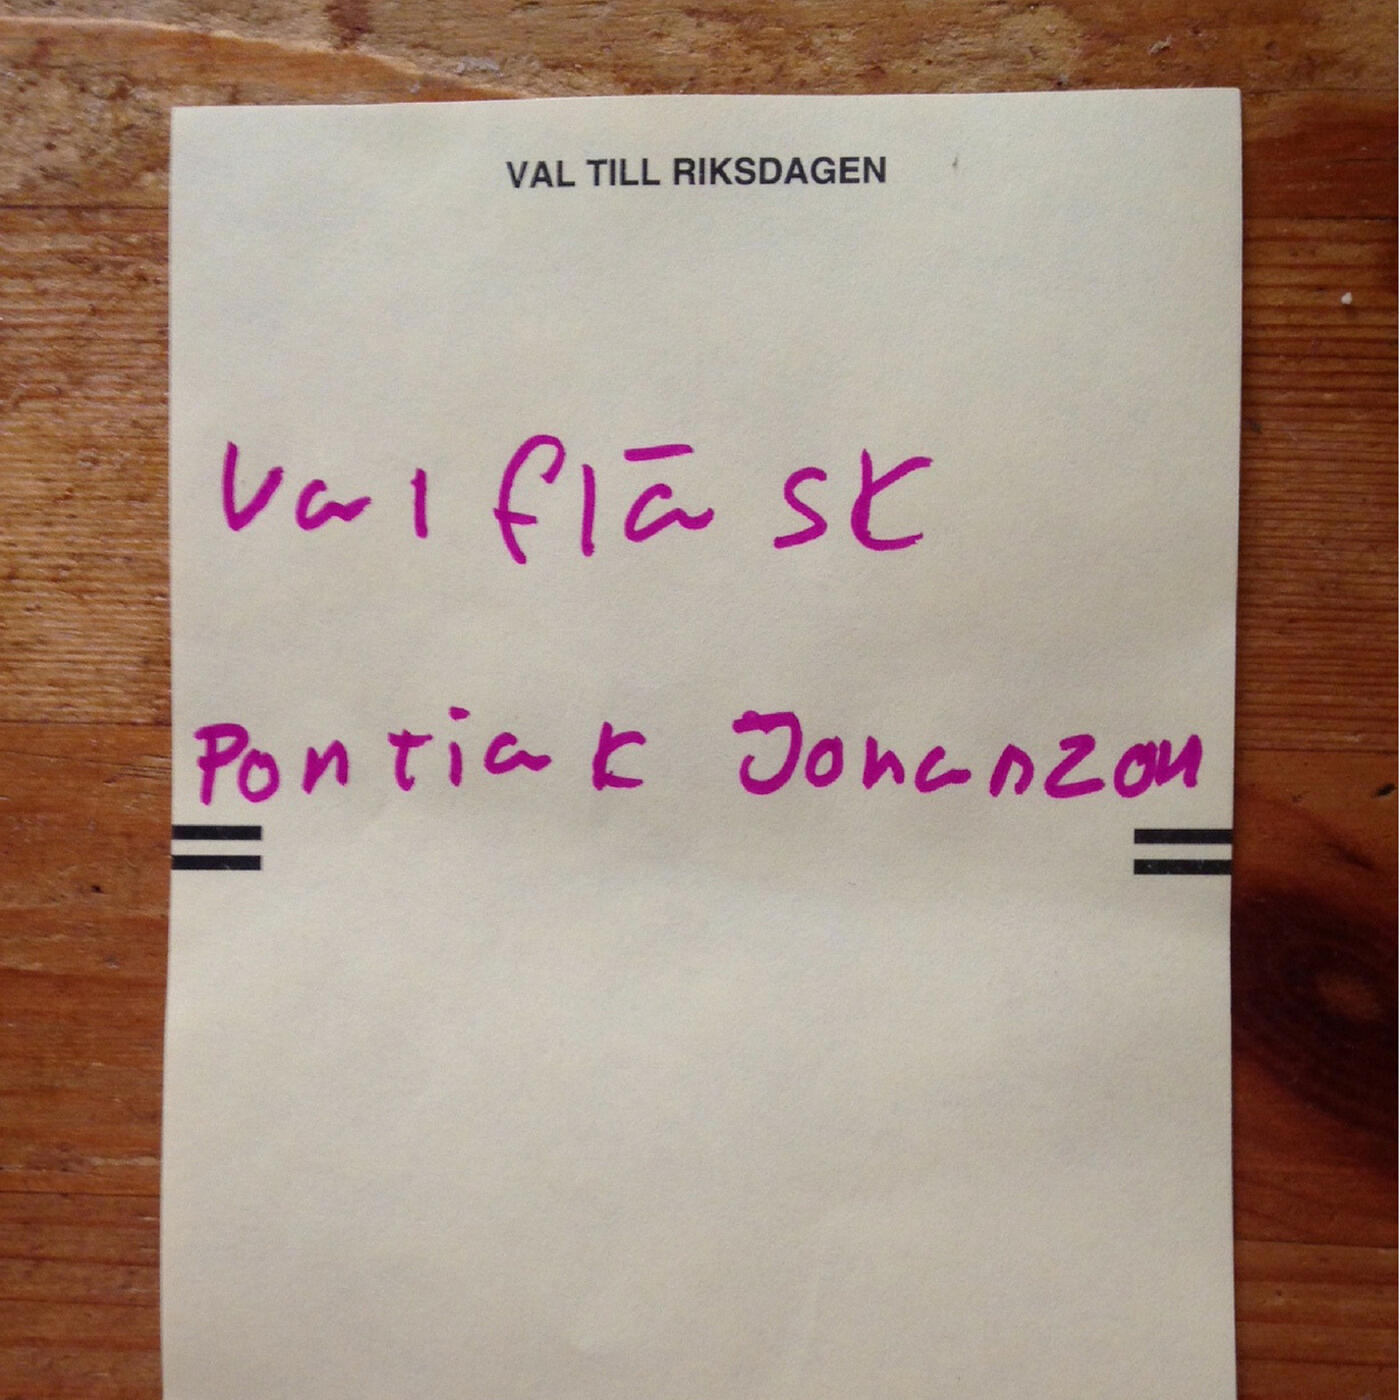 VAL TILL RIKSDAGEN
Valfläsk
Pontiak Johanzon